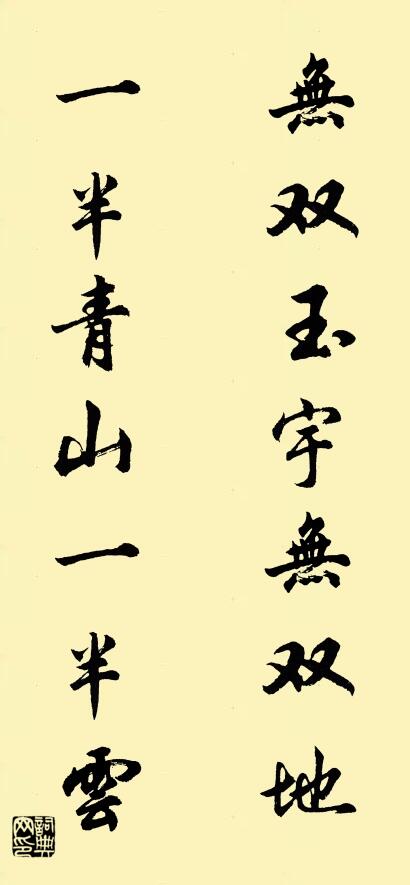 無双玉宇無双地
一半青山一半雲
詞典網印